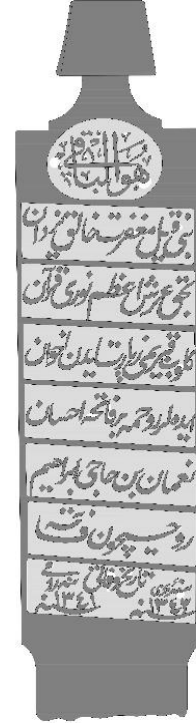 هو الباقي
بنى قيل مغفرت خالق يزدان
بحق عرش اعظم نورى قرآن
كلوب قبريمى زيارت ايدن اخوان
ايده لر روحمه بر فاتحه احسان
نعمان بن حاجى ابراهيم
روحيچون فاتحه
تاريخ وفاتى
سنه ١٣٤٦ سنه ١٣٤١